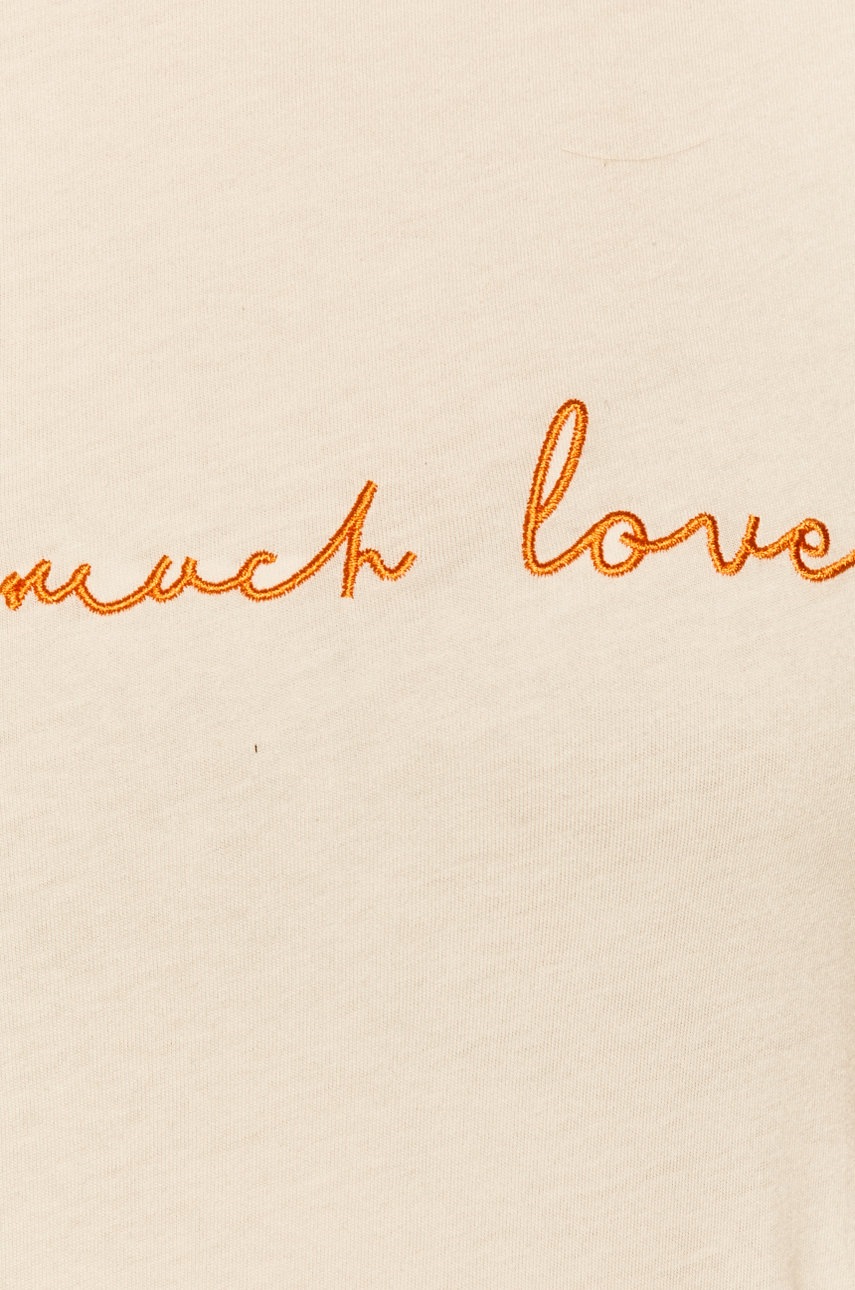 much love